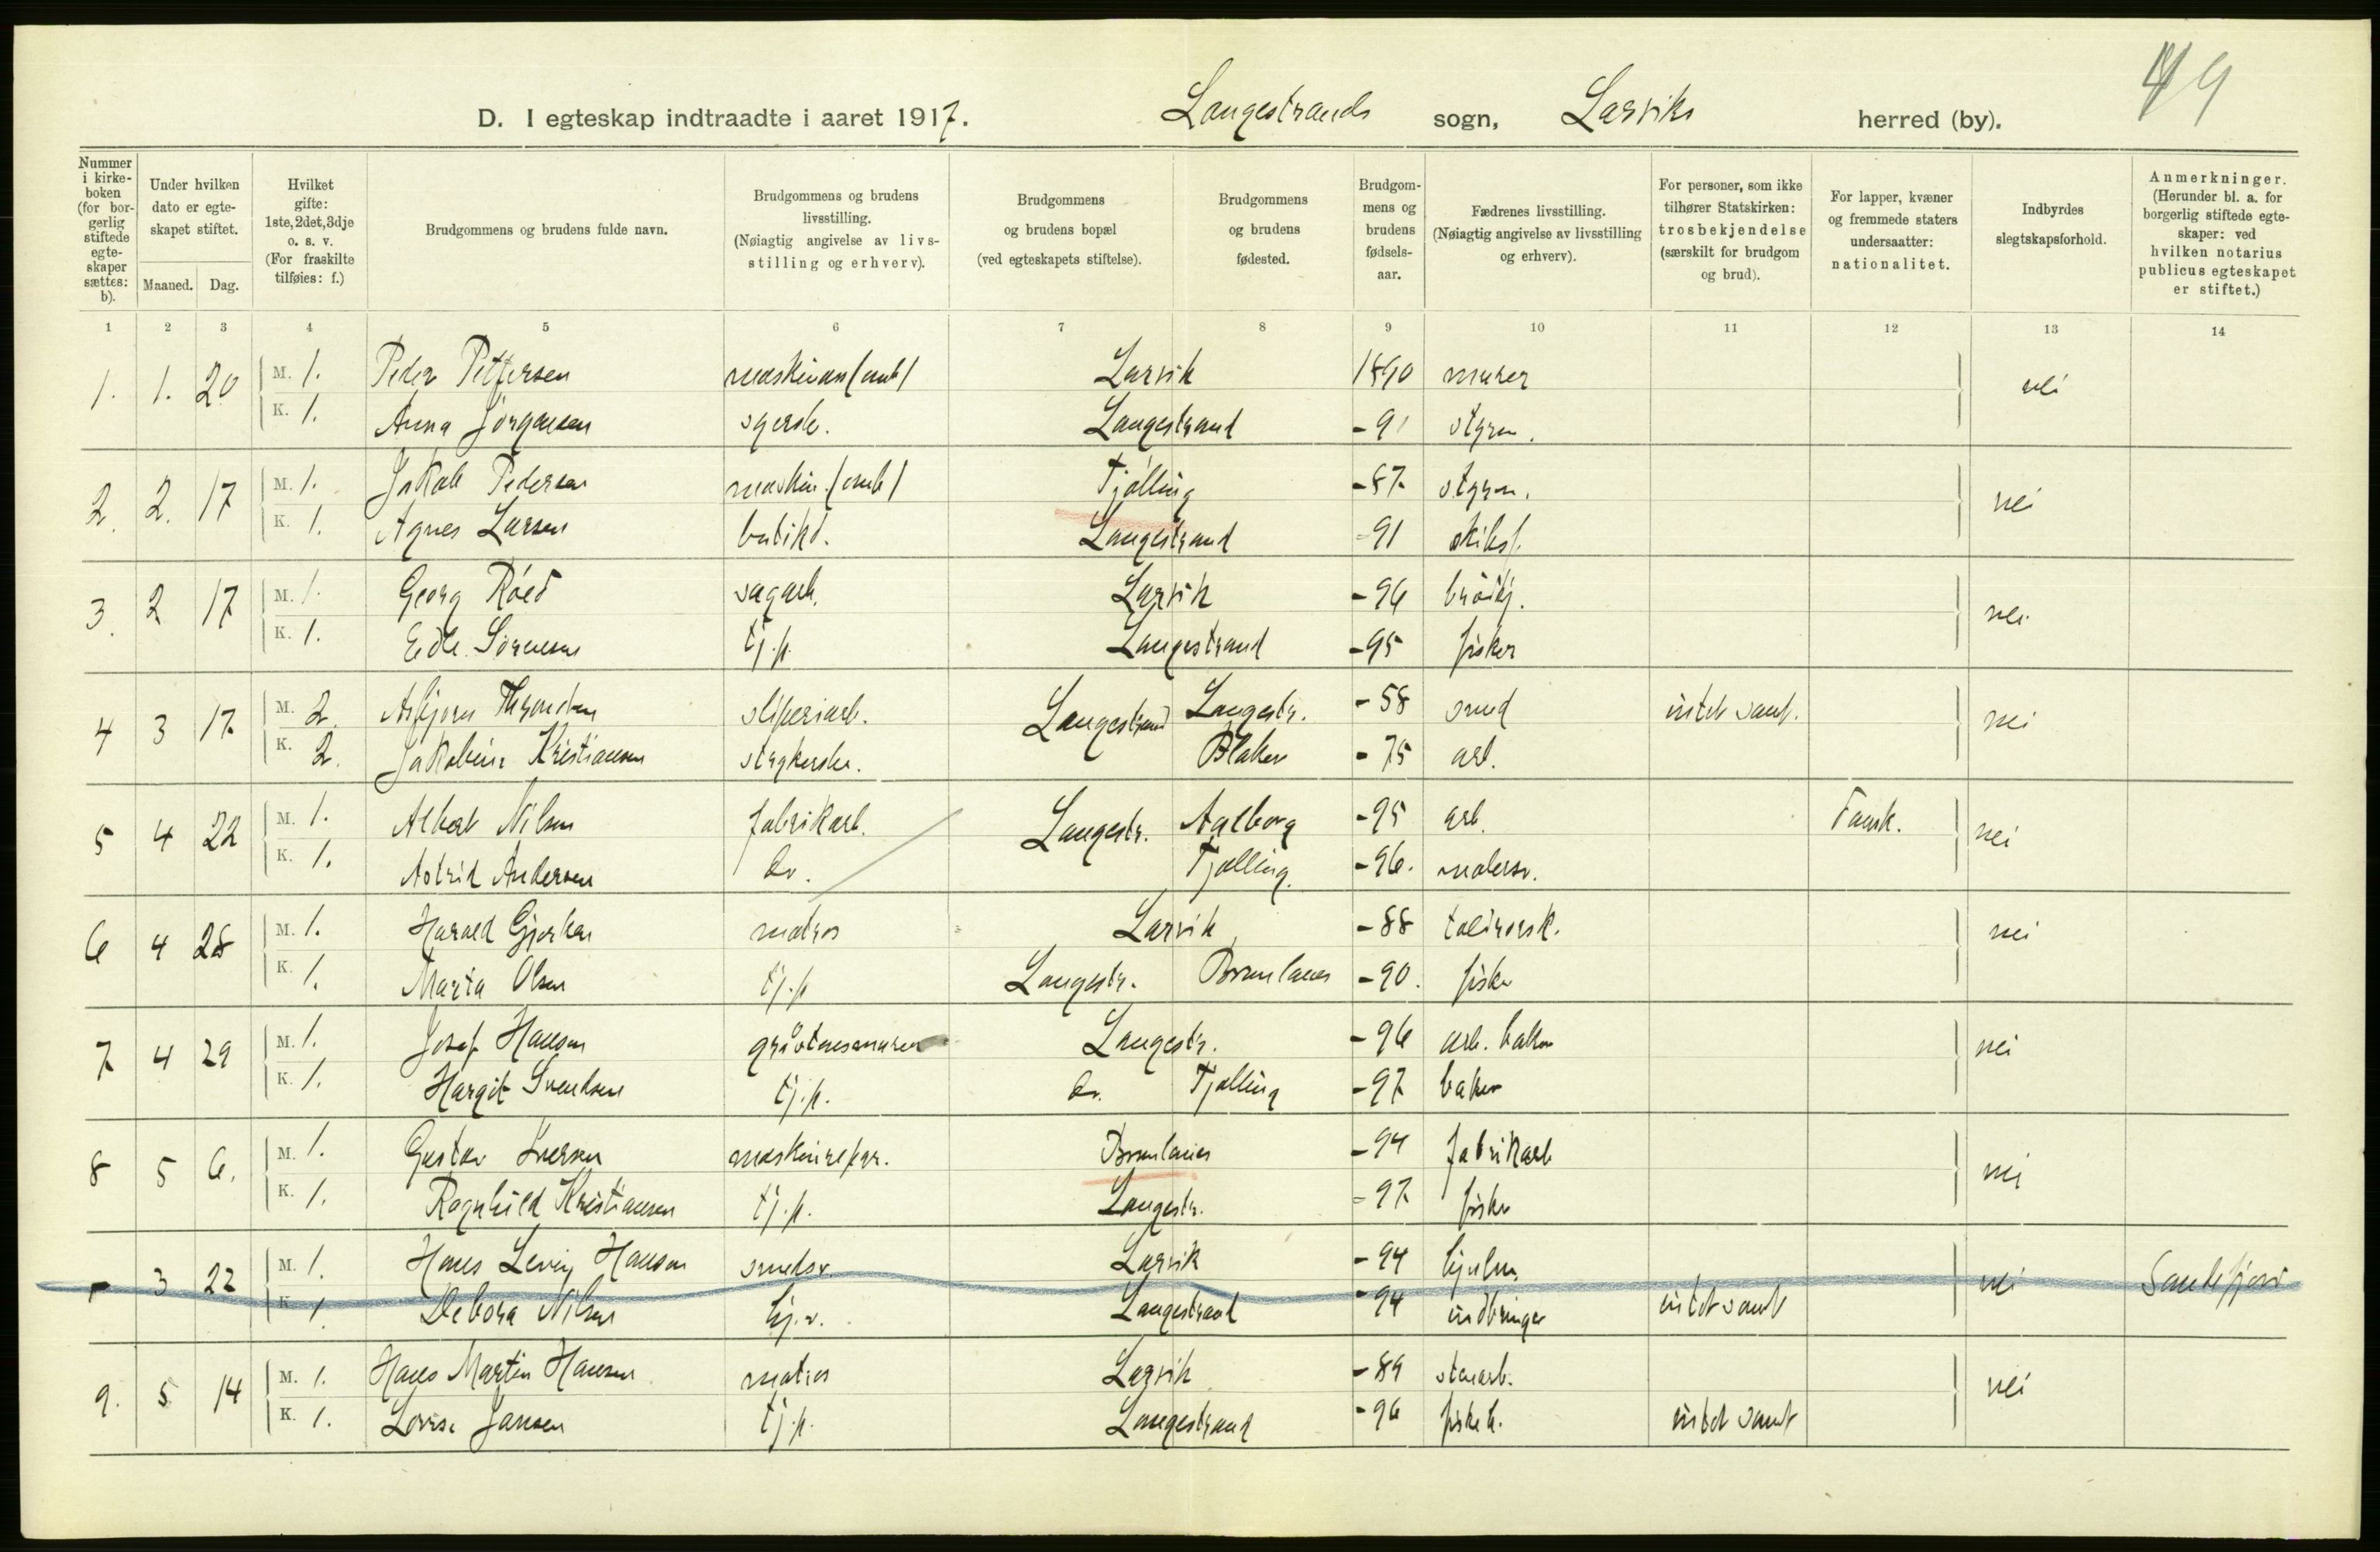 49
D. I egteskap indtraadte i aaret 1917. Langestrands sogn, Larviks herred (by).
Nummer i kirke-boken (for bor-gerlig stiftede egte-skaper sættes: b).
Under hvilken dato er egte-skapet stiftet.
Maaned. Dag.
Hvilket gifte: 1ste, 2det, 3dje o. s. v. (For fraskilte tilføies: f.)
Brudgommens og brudens fulde navn.
Brudgommens og brudens livsstilling. (Nøiagtig angivelse av livs-stilling og erhverv).
Brudgommens og brudens bopæl (ved egteskapets stiftelse).
Brudgommens og brudens fødested.
Brudgom-mens og brudens fødsels-aar.
Fædrenes livsstilling. (Nøiagtig angivelse av livsstilling og erhverv).
For personer, som ikke tilhører Statskirken: trosbekjendelse (særskilt for brudgom og brud).
For lapper, kvæner og fremmede staters undersaatter: nationalitet.
Indbyrdes slegtskapsforhold.
Anmerkninger. (Herunder bl. a. for borgerlig stiftede egte-skaper: ved hvilken notarius publicus egteskapet er stiftet.)
1 2 3 4 5 6 7 8 9 10 11 12 13 14
1. 1. 20 M. 1. Peder Pettersen Larvik 1890 murer nei
K. 1. Anna Jörgensen syersk. Langestrand -91 stgrm.
2. 2. 17 M. 1. Jakob Pedersen Tjölling -87 stgrm. nei
K. 1. Agnes Larsen butikd. Langestrand -91 skibsf.
3. 2 17 M. 1. Georg Röed sagarb. Larvik -96 nei
K. 1. Edle Sörensen tj.p. Langestrand -95 fisker
4 3 17 M. 2. Asbjørn sliperiarb. Langestrand Langestr. -58 smed intet samf. nei
K. 2. Jakobine Kristiansen strykerske. Blaker -75 arb.
5 4 22 M. 1. Albert Nilsen fabrikarb. Langestr. Aalborg -95 arb. Dansk. nei
K. 1. Astrid Andersen do. Tjølling. -96. malersv.
6 4 28 M. 1. Harald matros Larvik -88 nei
K. 1. Marta Olsen tj.p Langestr. Brunlanes -90. fisker
7 4 29 M. 1. Josef Hansen Langestr. -96 arb. nei
K. 1. Margit Svendsen tj.p. do. Tjølling -97 baker
8 5 6. M. 1. Gustav Iversen maskinrepr. Brunlanes -94 fabrikarb nei
K. 1. Ragnhild Kristiansen tj.p. Langestr. -97 fisker
- 3 22 M. 1. Hans Hansen smedsv. Larvik -94 hjulm. nei Sandefjord
K. 1. Debora Nilsen hj.v. Langestrand -94 indbringer intet samf
9. 5 14 M. 1. Hans Martin Hansen matros Larvik -89 stenarb. nei
K. 1. Lovise Jansen tj.p. Langestrand -96 intet samf